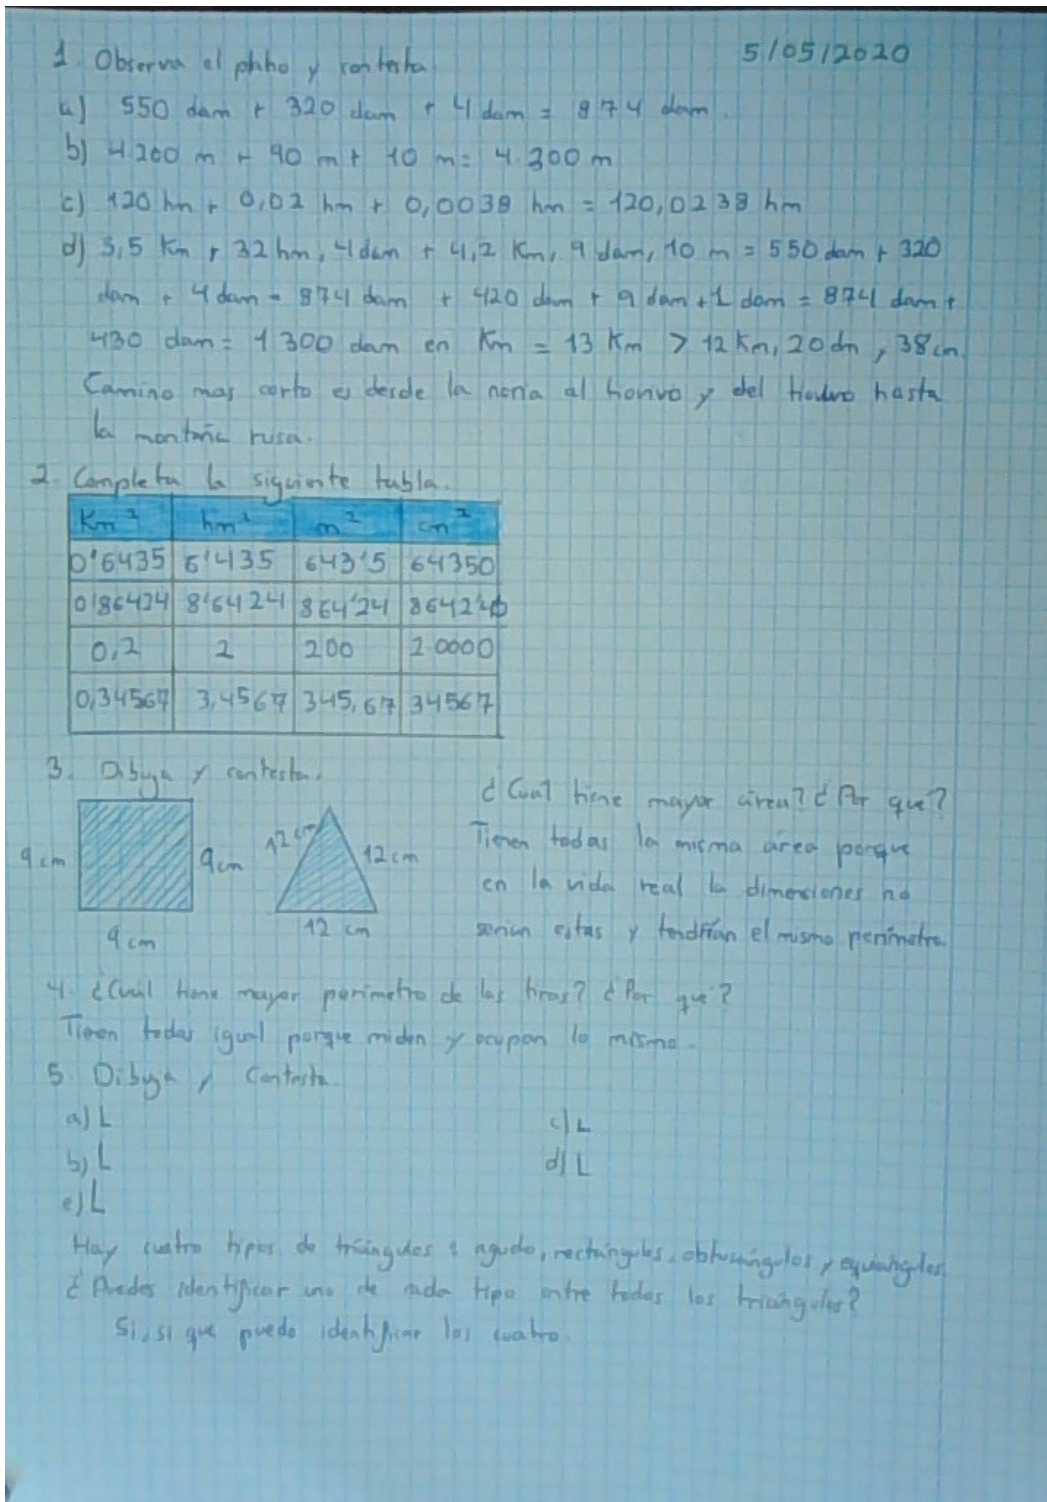 5/05/2020
1. Observa el plano y contesta
a) 550 dam + 320 dam + 4 dam = 874 dam.
b) 4.200 m + 90 m + 10 m = 4.300 m
c) 120 hm + 0,02 hm + 0,0038 hm = 120,0238 hm
d) 5,5 Km + 32 hm, 4 dam + 4,2 Km, 9 dam, 10 m = 550 dam + 320
dam + 4 dam = 874 dam + 420 dam + 9 dam + 1 dam = 874 dam +
430 dam = 1300 dam en Km = 13 Km > 12 Km, 20 dm, 38 cm.
Camino mas corto es desde la noria al y del hasta
la montaña rusa.
2. Completa la siguiente tabla.
Km² hm² m² cm²
0'6435 6'435 643'5 64350
0'86424 8'6424 864'24 86424
0,2 2 200 20000
0,34567 3,4567 345,67 34567
3. Dibuja y contesta.
9 cm 9 cm 9 cm
12 cm 12 cm 12 cm
¿Cual tiene mayor área? ¿Por que?
Tienen todas la misma área porque
en la vida real la dimensiones no
serian estas y tendrían el mismo perimetro.
4. ¿Cuál tiene mayor perimetro de las tiras? ¿Por que?
Tienen todas igual porque miden y ocupan lo mismo.
5. Dibuja y Contesta.
a) L
c) L
b) L
d) L
e) L
Hay cuatro tipos de triángulos: agudo, rectángulos, obtusángulos y equiángulos.
¿Puedes identificar uno de cada tipo entre todos los triángulos?
Si, si que puedo identificar los cuatro.